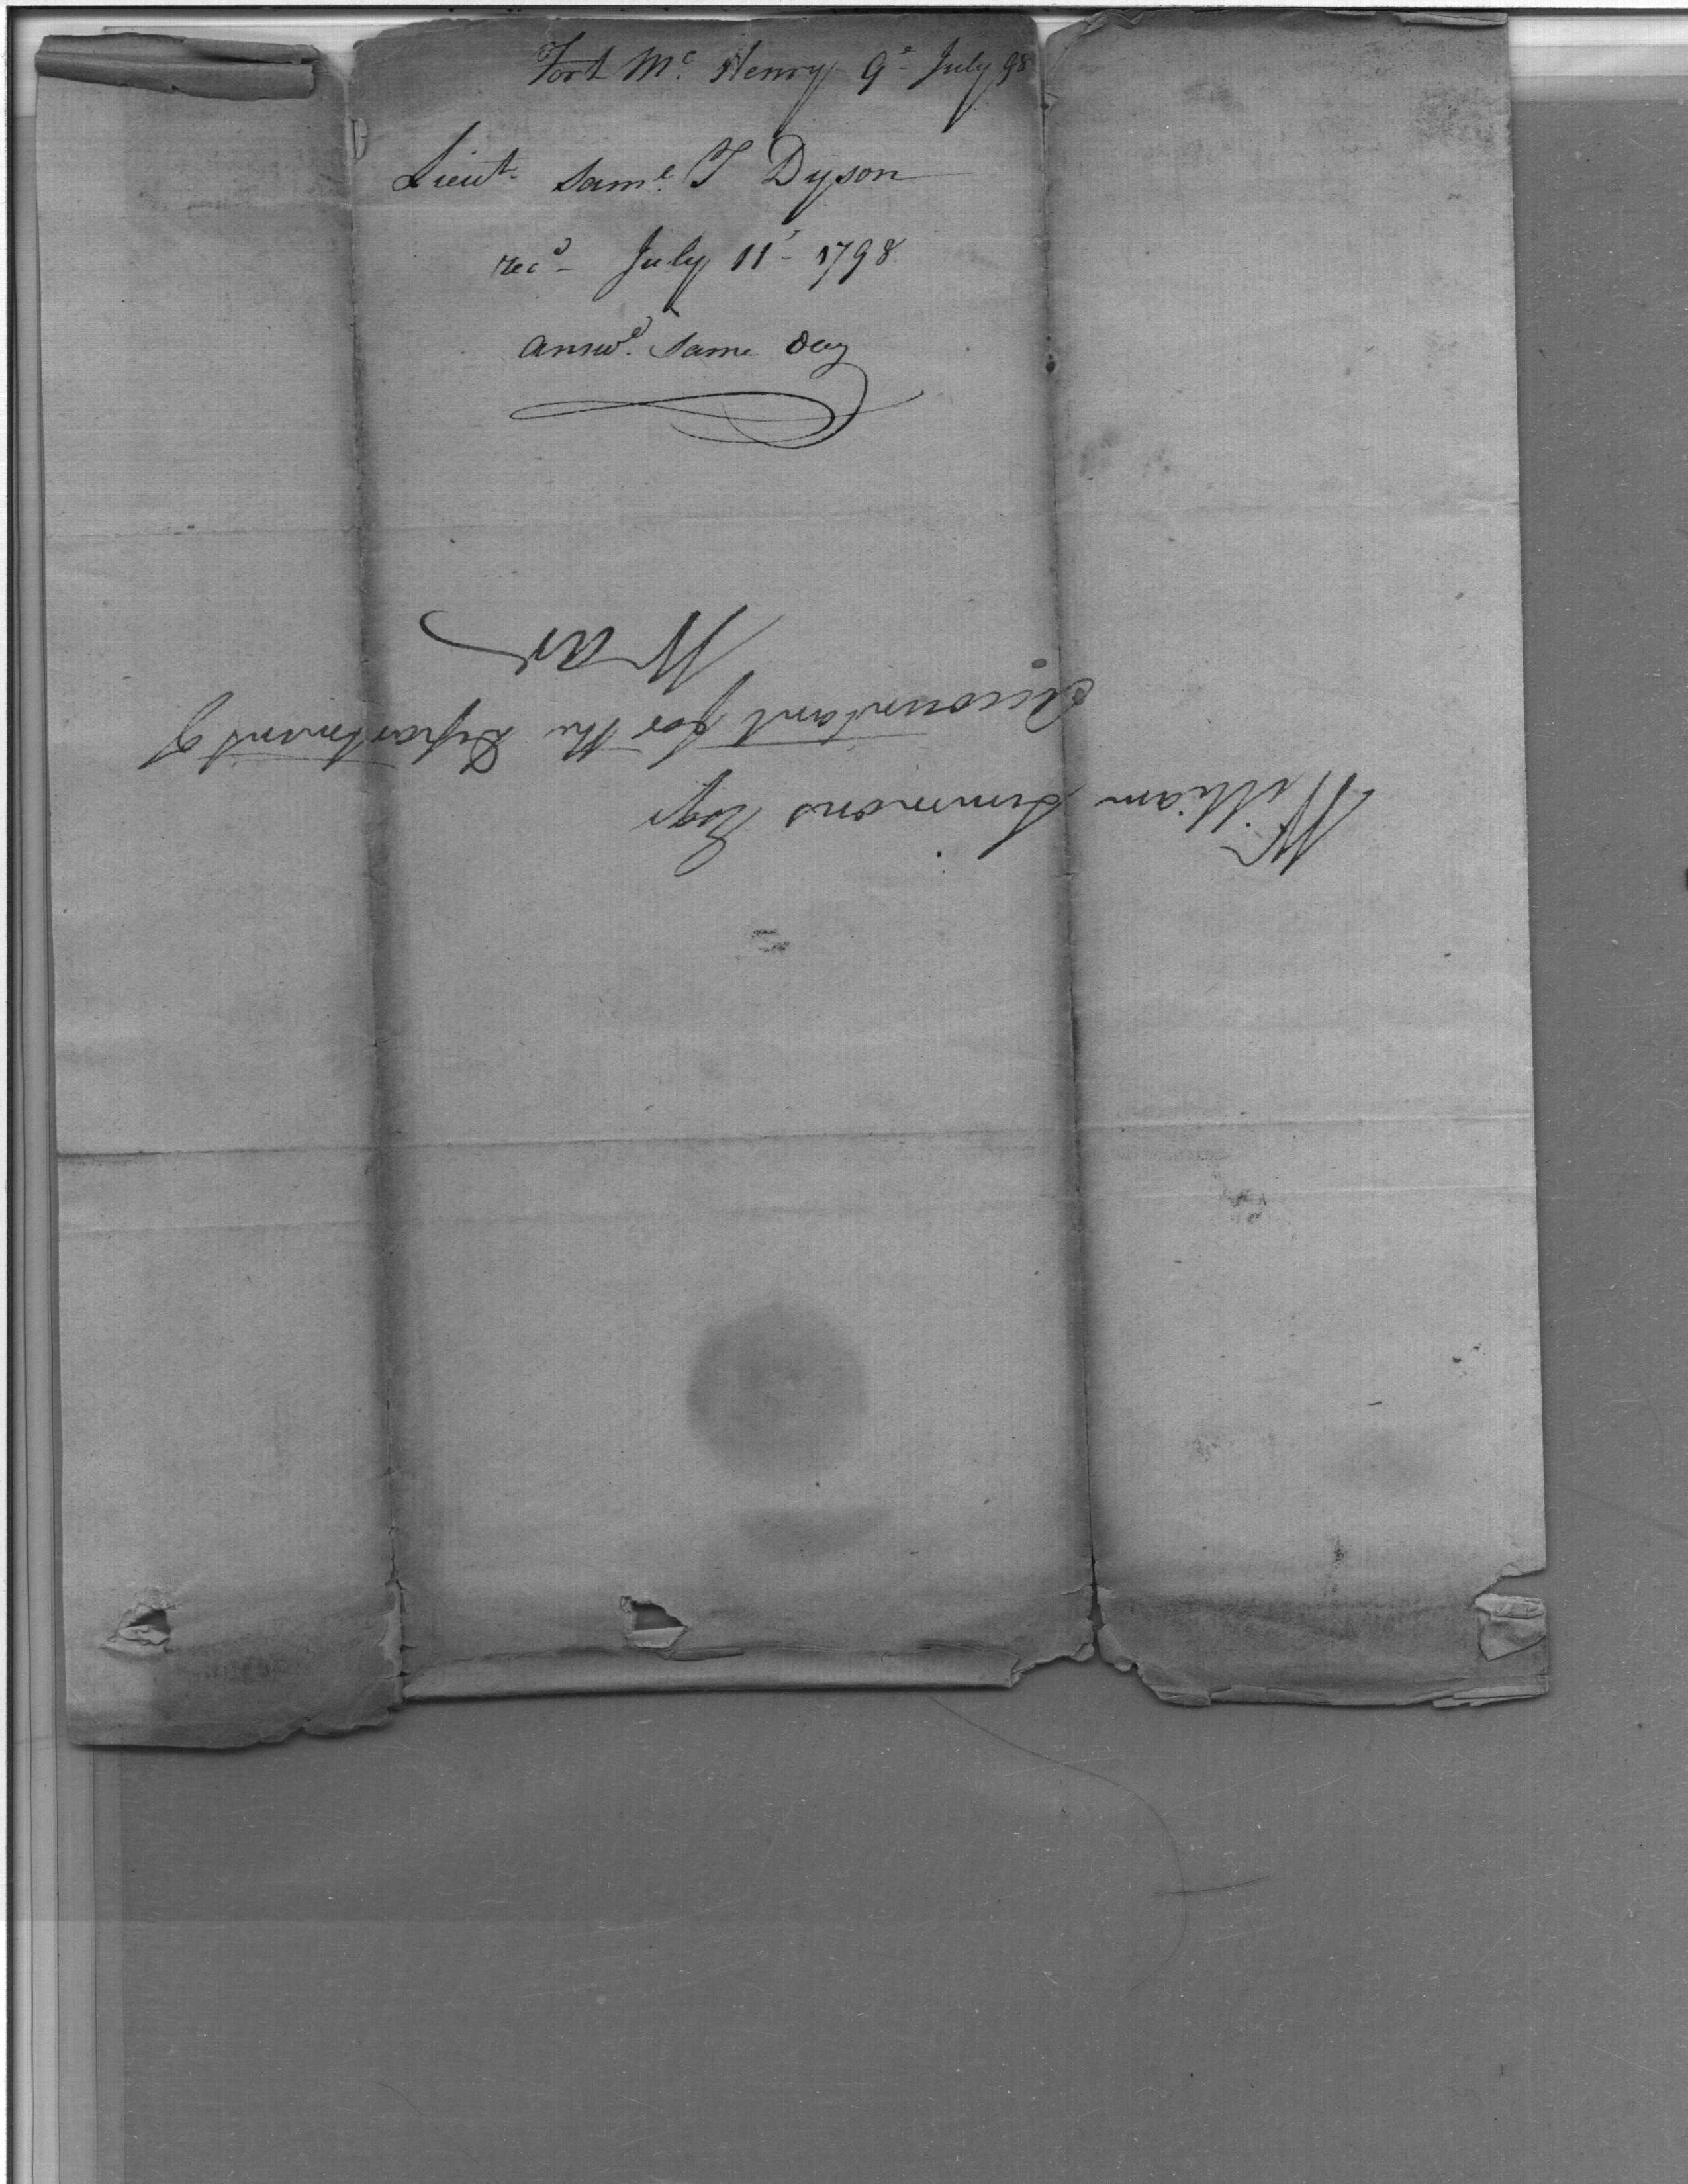 Fort Mc. Henry 9th July 98
Lieut. Saml. T Dyson
recd. July 11th 1798
answd. same day
William Simmons Esqr
Accountant for the Department of
War